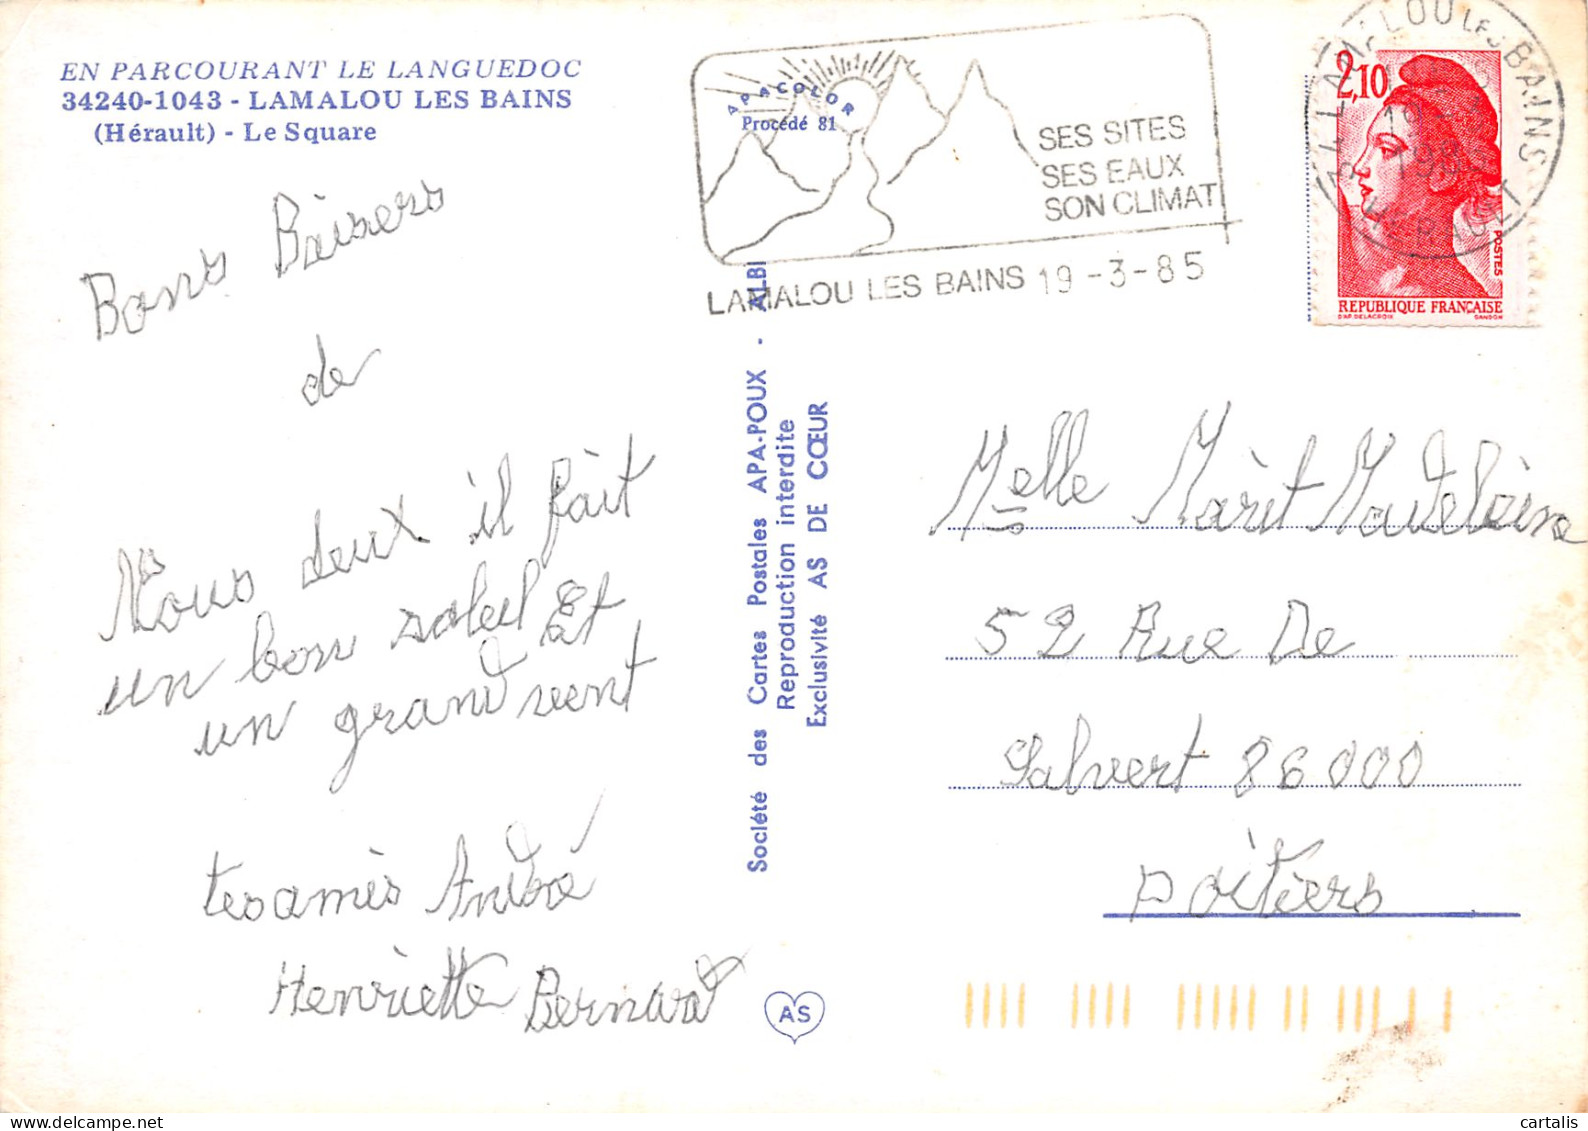 EN PARCOURANT LE LANGUEDOC
34240-1043 - LAMALOU LES BAINS
(Hérault) - Le Square
APACOLOR
Procédé 81
SES SITES
SES EAUX
SON CLIMAT
LAMALOU LES BAINS 19-3-85
34 LAMALOU LES BAINS
HERAULT
2,10
POSTES
REPUBLIQUE FRANÇAISE
D'AP. DELACROIX GANDON
Bons Baisers
de
Nous deux il fait
un bon soleil Et
un grand vent
tes amis André
Henriette Bernard
Société des Cartes Postales APA-POUX - ALBI
Reproduction interdite
Exclusivité AS DE CŒUR
Melle Marit Madeleine
52 Rue De
Salvert 86000
Poitiers
AS
cartalis